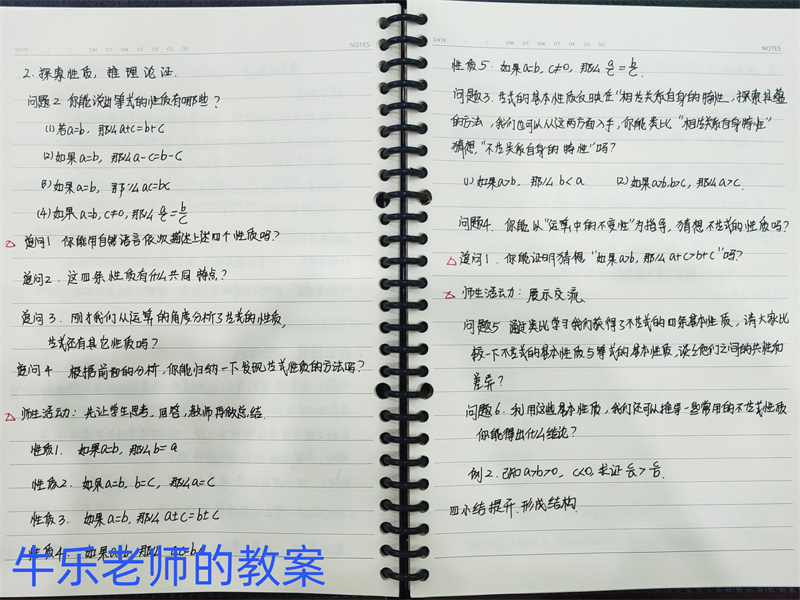 DATE
NOTES
2. 探索性质, 推理论证.
问题2 你能说出等式的性质有哪些?
(1) 若a=b, 那么a+c=b+c
(2) 如果a=b, 那么a-c=b-c
(3) 如果a=b, 那么ac=bc
(4) 如果a=b, c≠0, 那么 a/c = b/c
△ 追问1 你能用自然语言依次描述上述四个性质吗?
追问2. 这四条性质有什么共同特点?
追问3. 刚才我们从运算的角度分析了等式的性质,
等式还有其它性质吗?
追问4 根据前面的分析, 你能归纳一下发现等式性质的方法吗?
△ 师生活动: 先让学生思考. 回答, 教师再做总结.
性质1. 如果a=b, 那么b=a
性质2. 如果a=b, b=c, 那么a=c
性质3. 如果a=b, 那么a±c=b±c
性质4. 如果a=b, 那么
牛乐老师的教案
DATE
NOTES
性质5. 如果a=b, c≠0, 那么 a/c = b/c.
问题3. 等式的基本性质反映在"相等关系自身的特性, 探索其蕴
的方法, 我们也可以从这两方面入手, 你能类比"相等关系自身特性"
猜想, "不等关系自身的特性"吗?
(1) 如果a>b, 那么b<a (2) 如果a>b, b>c, 那么a>c.
问题4. 你能以"运算中的不变性"为指导, 猜想不等式的性质吗?
△ 追问1. 你能证明猜想"如果a>b, 那么a+c>b+c"吗?
△ 师生活动: 展示交流
问题5 通过类比学习我们获得了不等式的四条基本性质, 请大家比
较一下不等式的基本性质与等式的基本性质, 谈谈他们之间的共性和
差异?
问题6. 利用这些基本性质, 我们还可以推导一些常用的不等式性质
你能得出什么结论?
例2. 已知a>b>0, c<0, 求证 c/a > c/b.
四 小结提升. 形成结构.